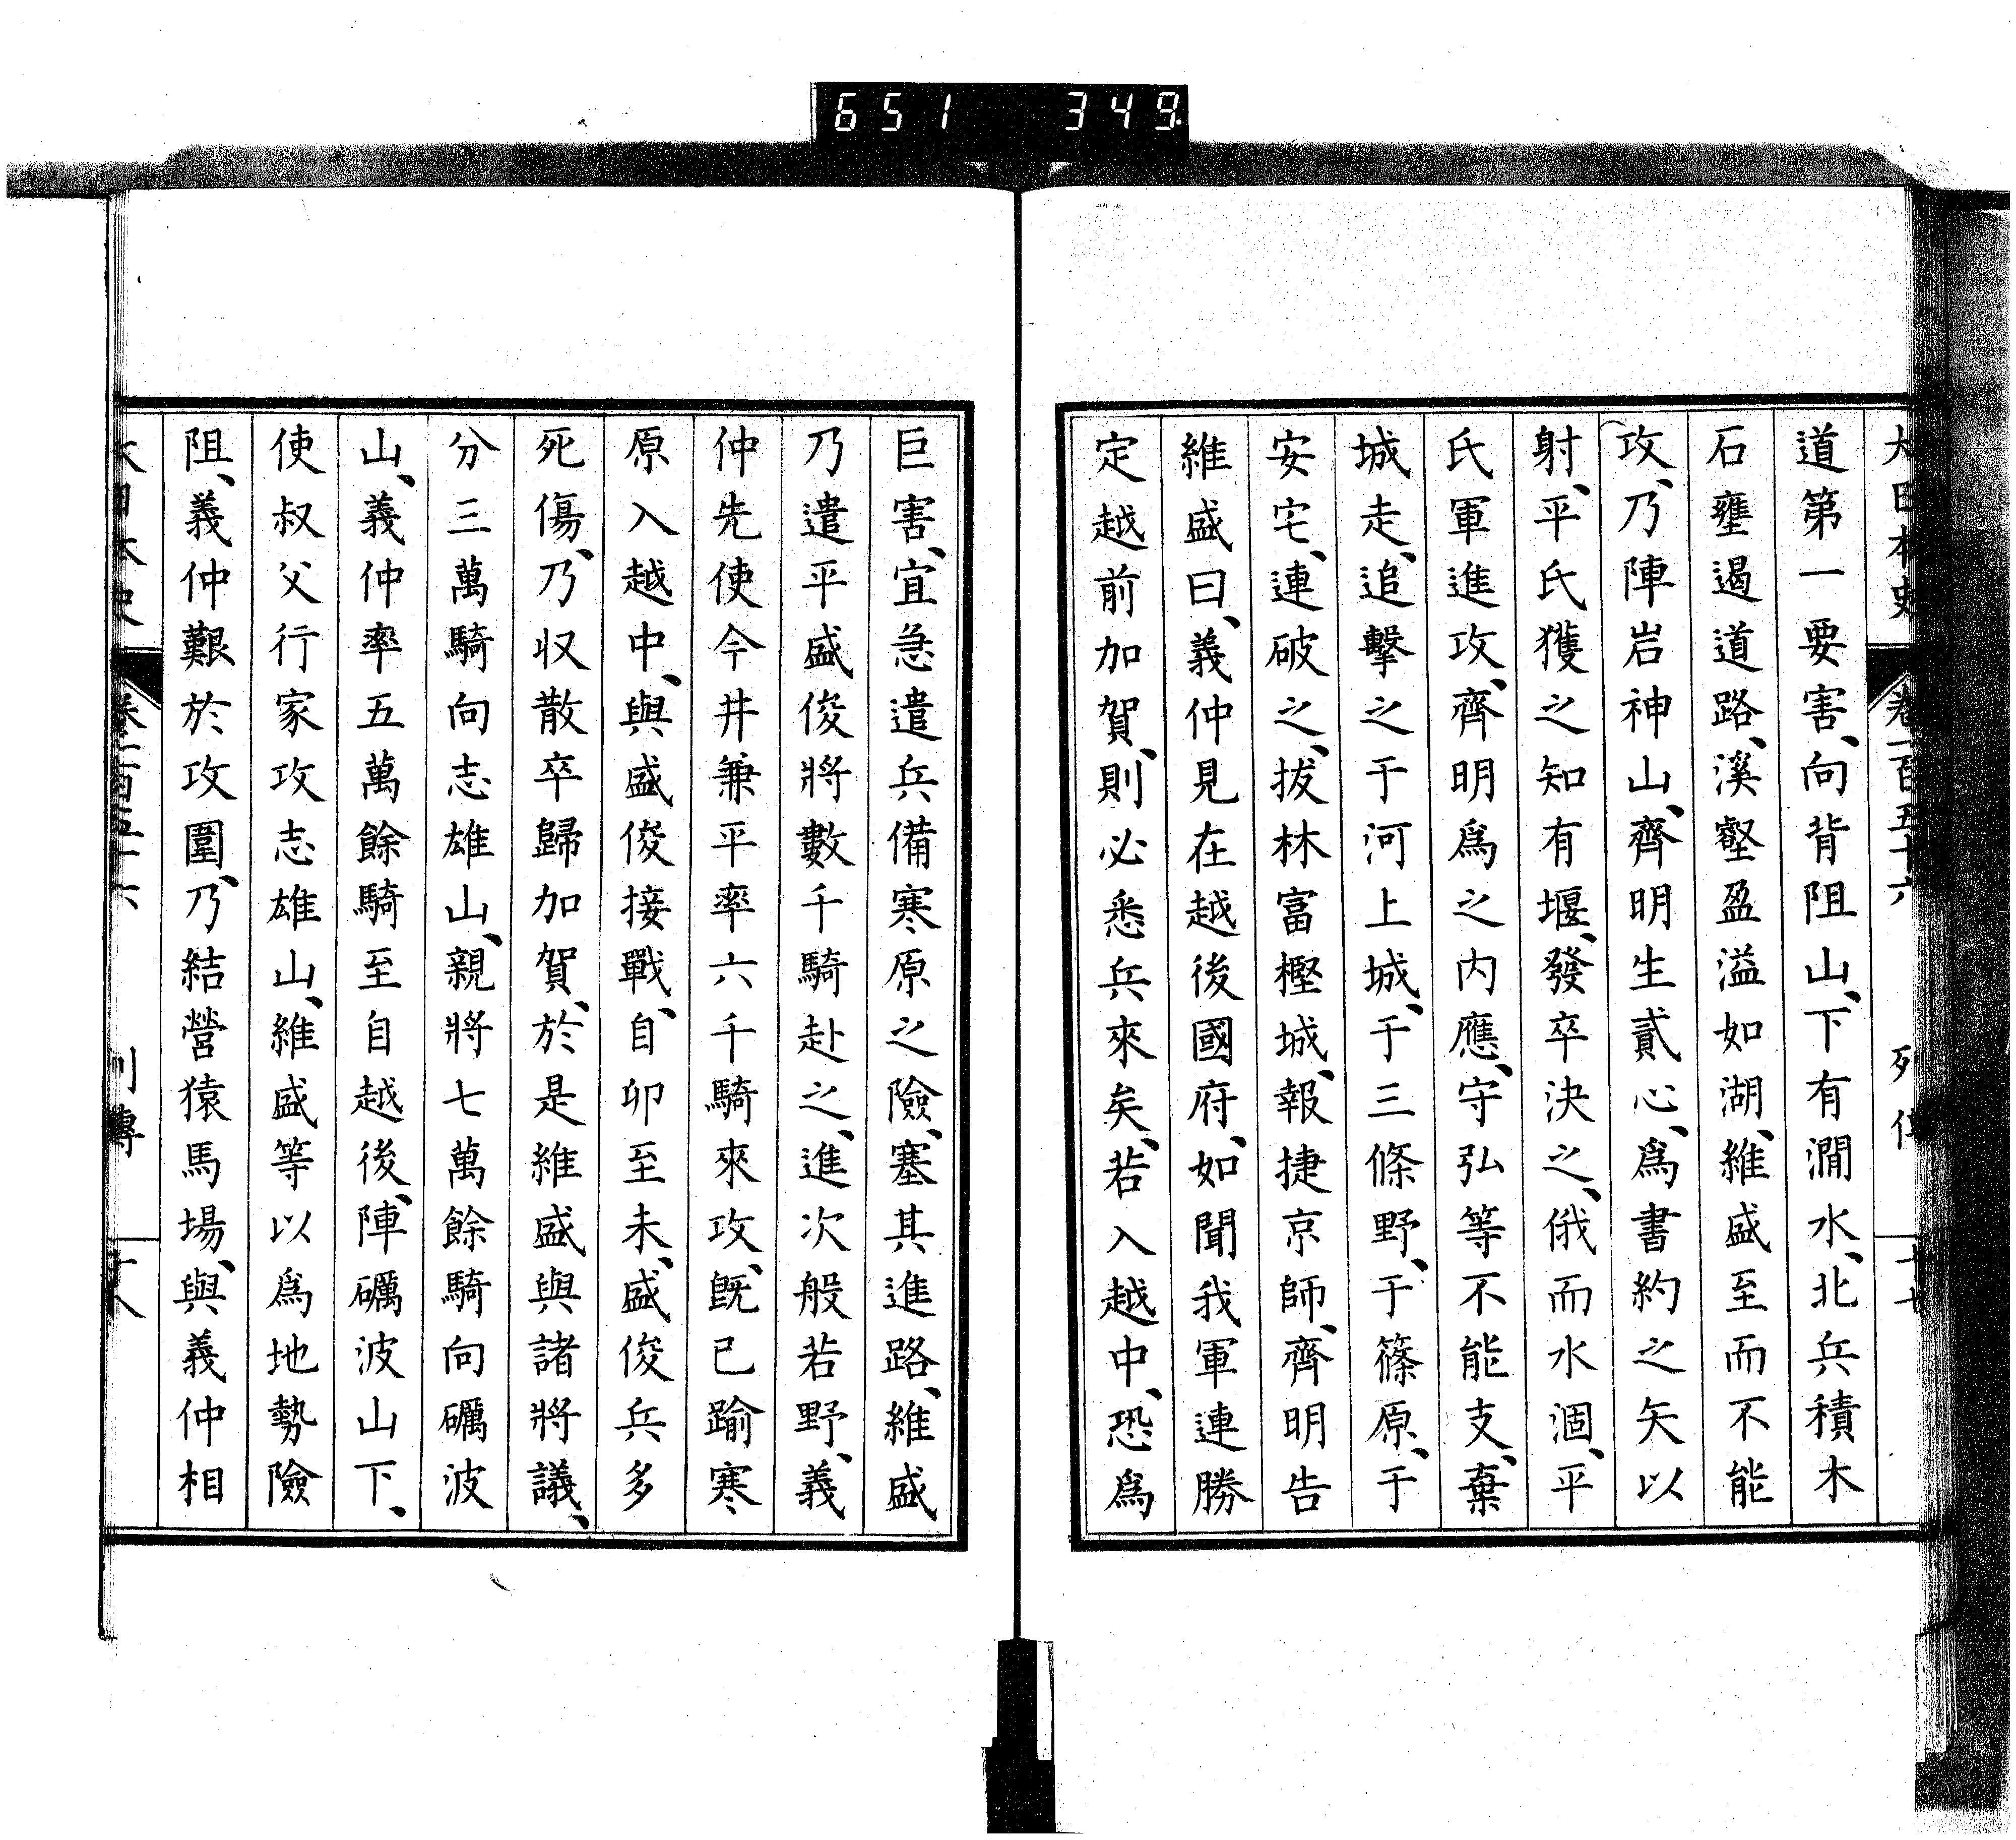 651 349
大日本史 卷一百五十六 列傳 十七
道第一要害、向背阻山、下有澗水、北兵積木
石壅遏道路、溪壑盈溢如湖、維盛至而不能
攻、乃陣岩神山、齊明生貳心、爲書約之矢以
射、平氏獲之知有堰、發卒決之、俄而水涸、平
氏軍進攻、齊明爲之内應、守弘等不能支、棄
城走、追擊之于河上城、于三條野、于篠原、于
安宅、連破之、拔林富樫城、報捷京師、齊明告
維盛曰、義仲見在越後國府、如聞我軍連勝
定越前加賀、則必悉兵來矣、若入越中、恐爲
巨害、宜急遣兵備寒原之險、塞其進路、維盛
乃遣平盛俊將數千騎赴之、進次般若野、義
仲先使今井兼平率六千騎來攻、既已踰寒
原入越中、與盛俊接戰、自卯至未、盛俊兵多
死傷、乃収散卒歸加賀、於是維盛與諸將議、
分三萬騎向志雄山、親將七萬餘騎向礪波
山、義仲率五萬餘騎至自越後、陣礪波山下、
使叔父行家攻志雄山、維盛等以爲地勢險
阻、義仲艱於攻圍、乃結營猿馬場、與義仲相
大日本史 卷一百五十六 列傳 十八